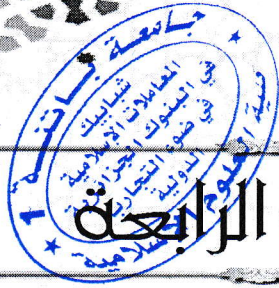 جامعة باتنة 1
كلية العلوم الإسلامية
شبابيك
المعاملات الإسلامية
في البنوك الجزائرية
في ضوء التجارب
الدولية
الرابعة